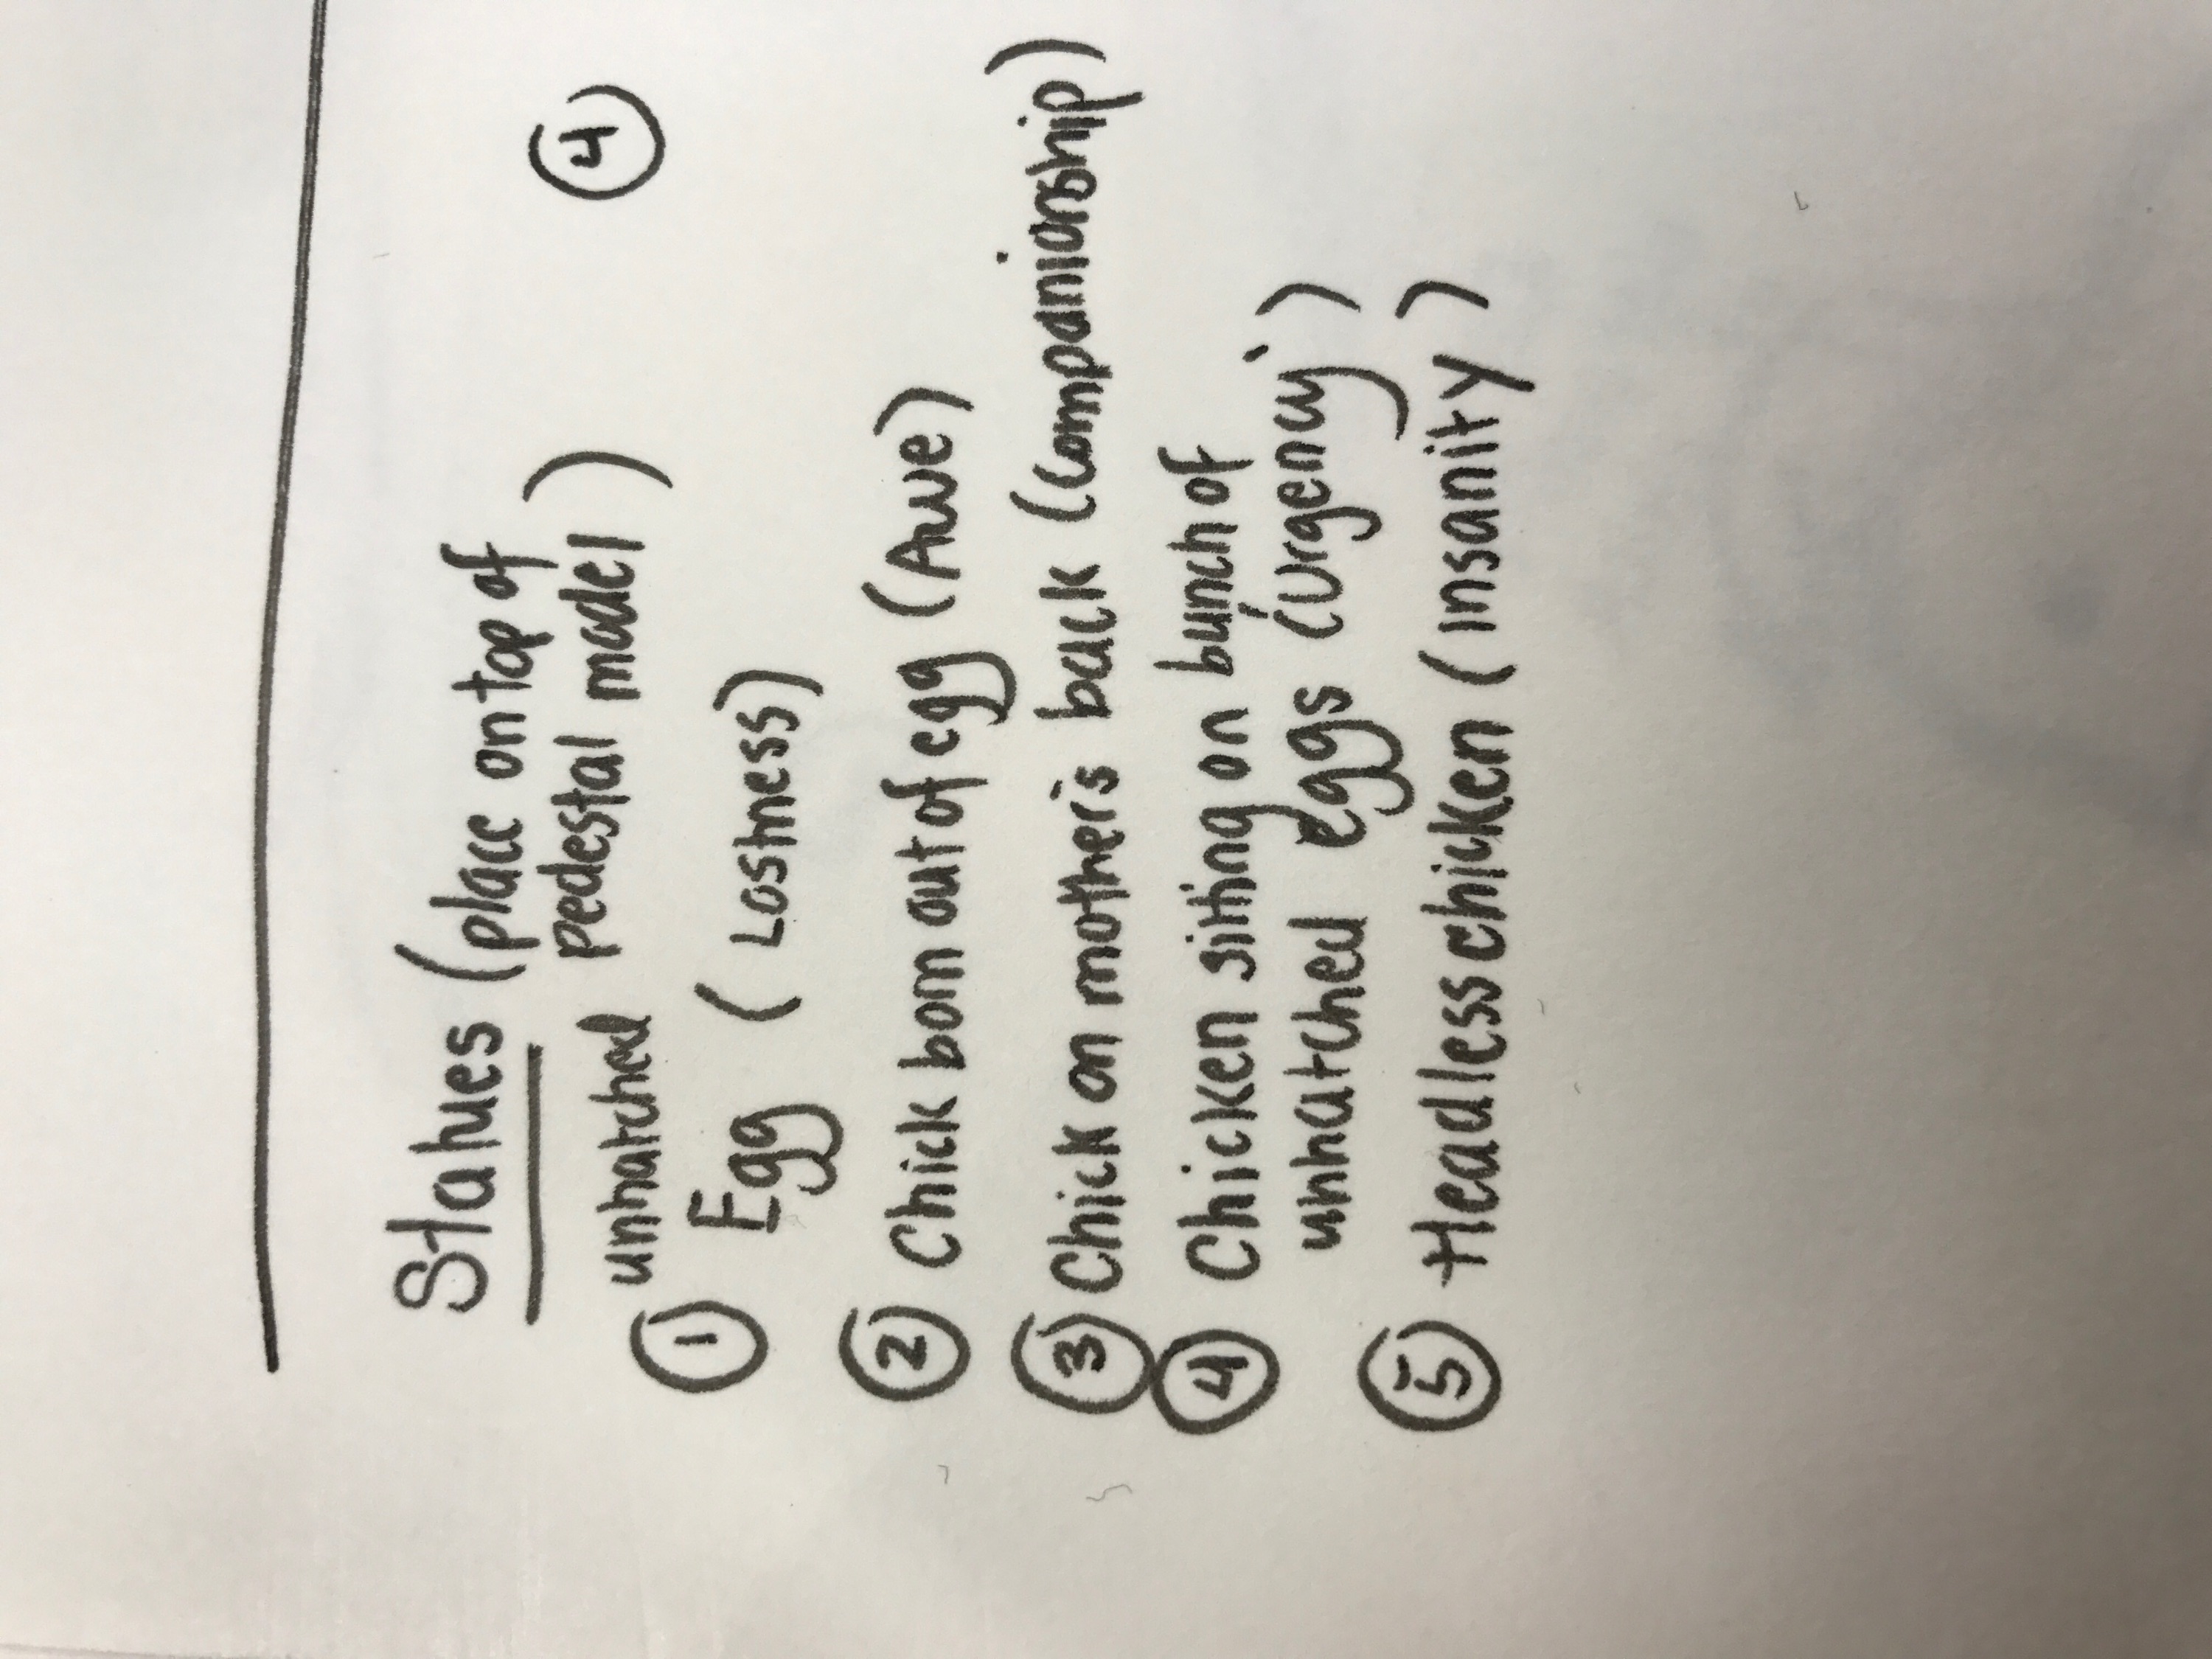 Statues (place on top of
pedestal model)
4
unhatched
1 Egg (Lostness)
2 Chick born out of egg (Awe)
3 Chick on mother's back (Companionship)
4 Chicken sitting on bunch of
unhatched eggs (Urgency)
5 Headless chicken (insanity)